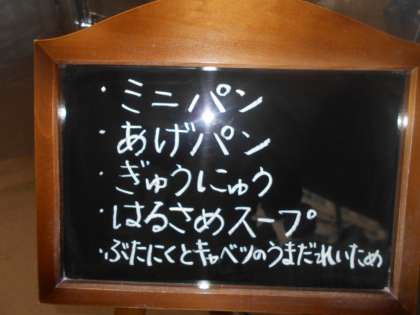 ・ミニパン
・あげパン
・ぎゅうにゅう
・はるさめスープ
・ぶたにくとキャベツのうまだれいため